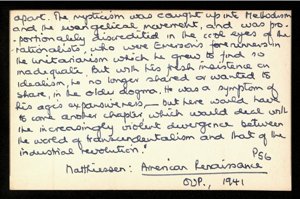 apart. The mysticism was caught up into Methodism
and the evangelical movement, and was pro-
portionately discredited in the cool eyes of the
rationalists, who were Emerson's forerunners in
the unitarianism which he grew to find so
inadequate. But with his fresh insistence on
Idealism, he no longer shared or wanted to
share, in the older dogma. He was a symptom of
his age's expansiveness, - but here would have
to come another chapter which would deal with
the increasingly violent divergence between
the world of transcendentalism and that of the
industrial revolution."
P56
Matthiessen: American Renaissance
OUP., 1941